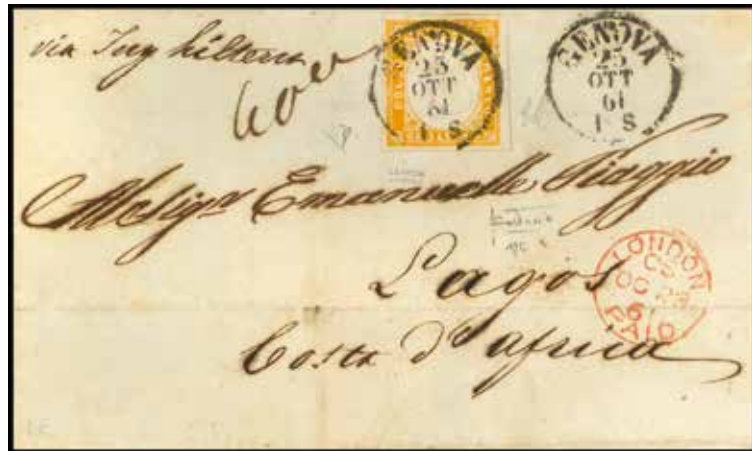 via Inghilterra
600
GENOVA
25
OTT
61
1 S
GENOVA
25
OTT
61
1 S
Al Sigr Emanuele Piaggio
Lagos
Costa d'africa
LONDON
OC
61
PAID